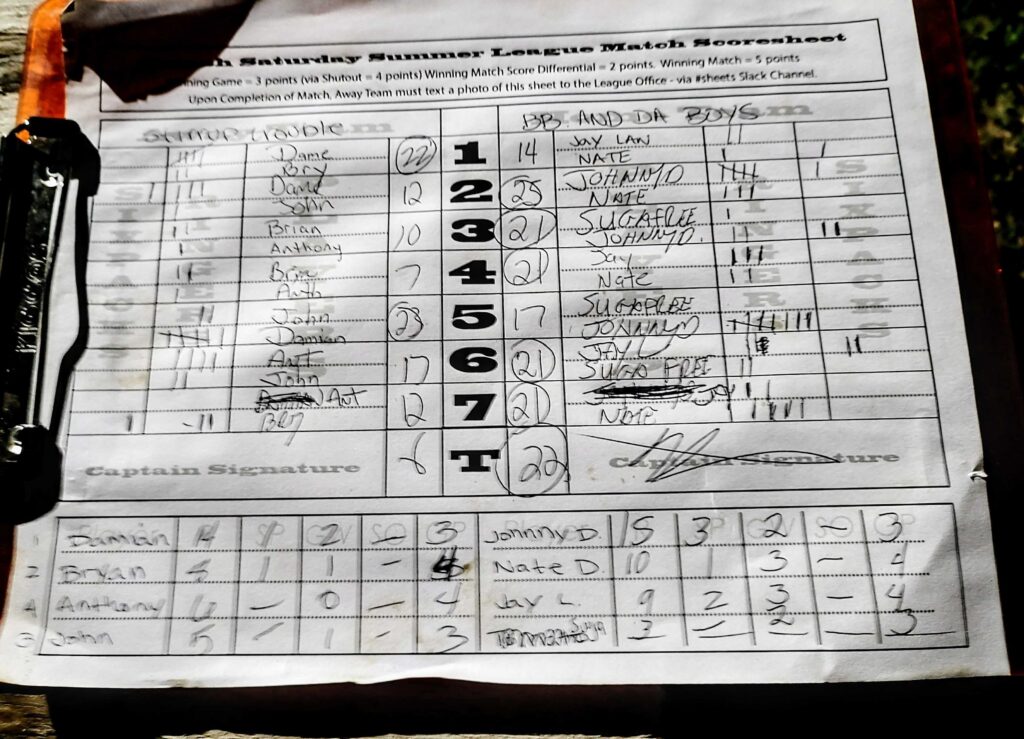 h Saturday Summer League Match Scoresheet
ning Game = 3 points (via Shutout = 4 points) Winning Match Score Differential = 2 points. Winning Match = 5 points
Upon Completion of Match, Away Team must text a photo of this sheet to the League Office - via #sheets Slack Channel.
Stirrup trouble BB AND DA BOYS
Dame 22 1 14 JAY LAW
Bry NATE
Dame 12 2 25 JOHNNYD
John NATE
Brian 10 3 21 SUGAFREE
Anthony JOHNNYD.
Brin 7 4 21 Jay
Anth NATE
John 23 5 17 SUGAFREE
Damian JONNNYD
Ant 17 6 21 JAY L
John SUGA FREE
Ant 12 7 21 Jay
Bry NATE
Captain Signature 6 T 22 Captain Signature
1 Damian 2 - 3 Johnny D. 15 3 2 - 3
2 Bryan 5 1 1 - 4 Nate D. 10 1 3 - 4
4 Anthony 6 - 0 - 4 Jay L. 9 2 3 - 4
3 John 5 - 1 - 3 3 - 2 - 3